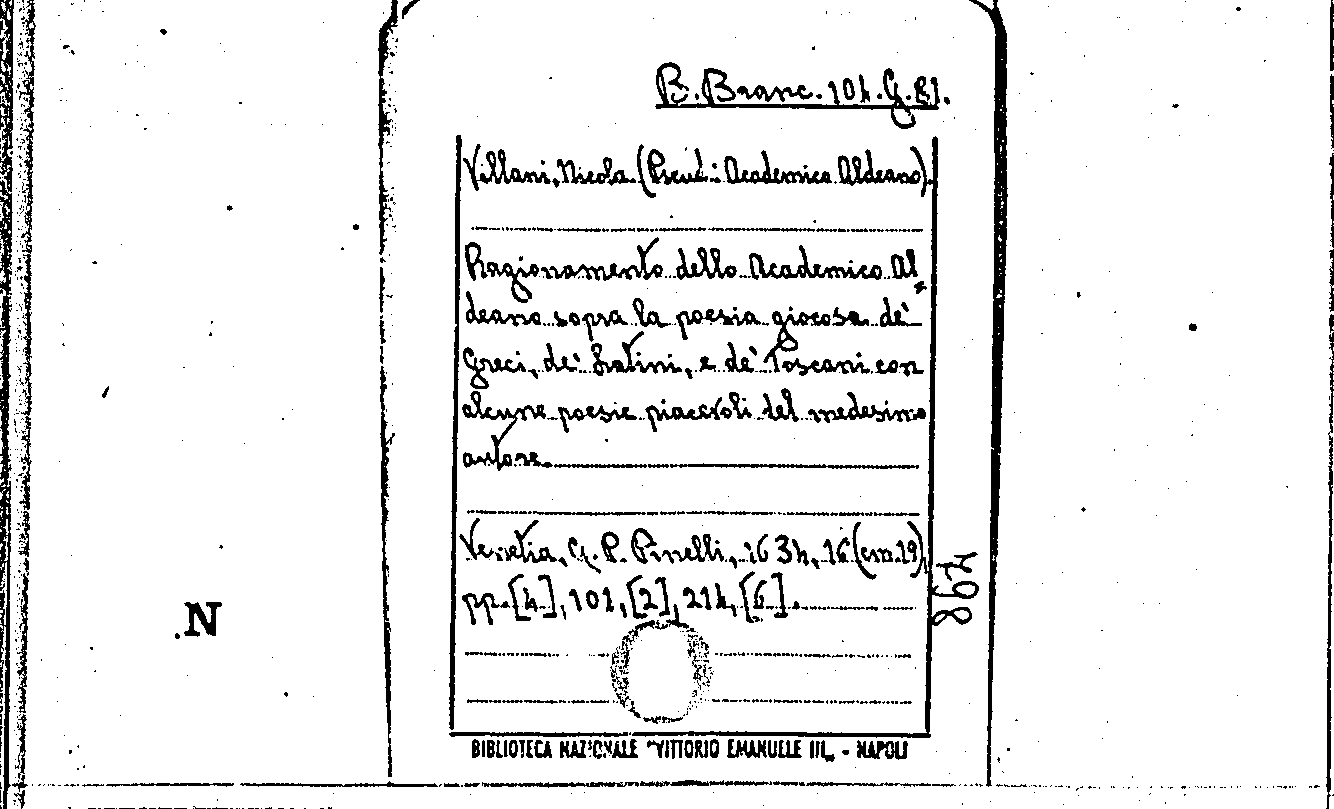 B. Branc. 104. G. 81.
Villani, Nicola (Pseud.: Academico Aldeano).
Ragionamento dello Academico Al=
deano sopra la poesia giocosa de'
Greci, de' Latini, e de' Toscani con
alcune poesie piacevoli del medesimo
autore.
Venetia, G. P. Pinelli, 1634, 16 (cm. 19),
pp. [4], 101, [2], 214, [6].
498
N
BIBLIOTECA NAZIONALE "VITTORIO EMANUELE III„ - NAPOLI